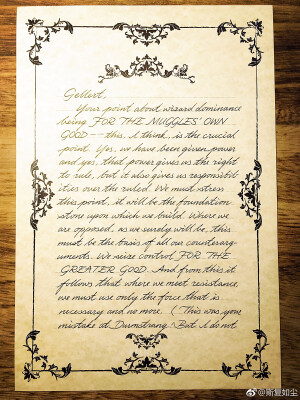 Gellert,
Your point about wizard dominance
being FOR THE MUGGLES' OWN
GOOD -- this, I think, is the crucial
point. Yes, we have been given power
and yes, that power gives us the right
to rule, but it also gives us responsibil-
ities over the ruled. We must stress
this point, it will be the foundation
stone upon which we build. Where we
are opposed, as we surely will be, this
must be the basis of all our counterarg-
uments. We seize control FOR THE
GREATER GOOD. And from this it
follows that where we meet resistance
we must use only the force that is
necessary and no more. (This was your
mistake at Durmstrang! But I do not
@斯复如尘